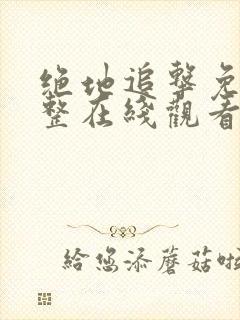 絶地追擊免
整在綫觀看
給您添蘑菇啦